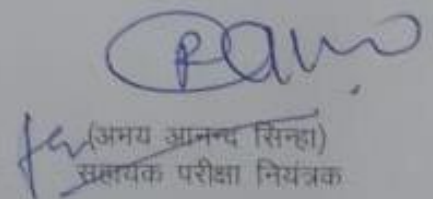 (अभय आनन्द सिन्हा)
सहायक परीक्षा नियंत्रक